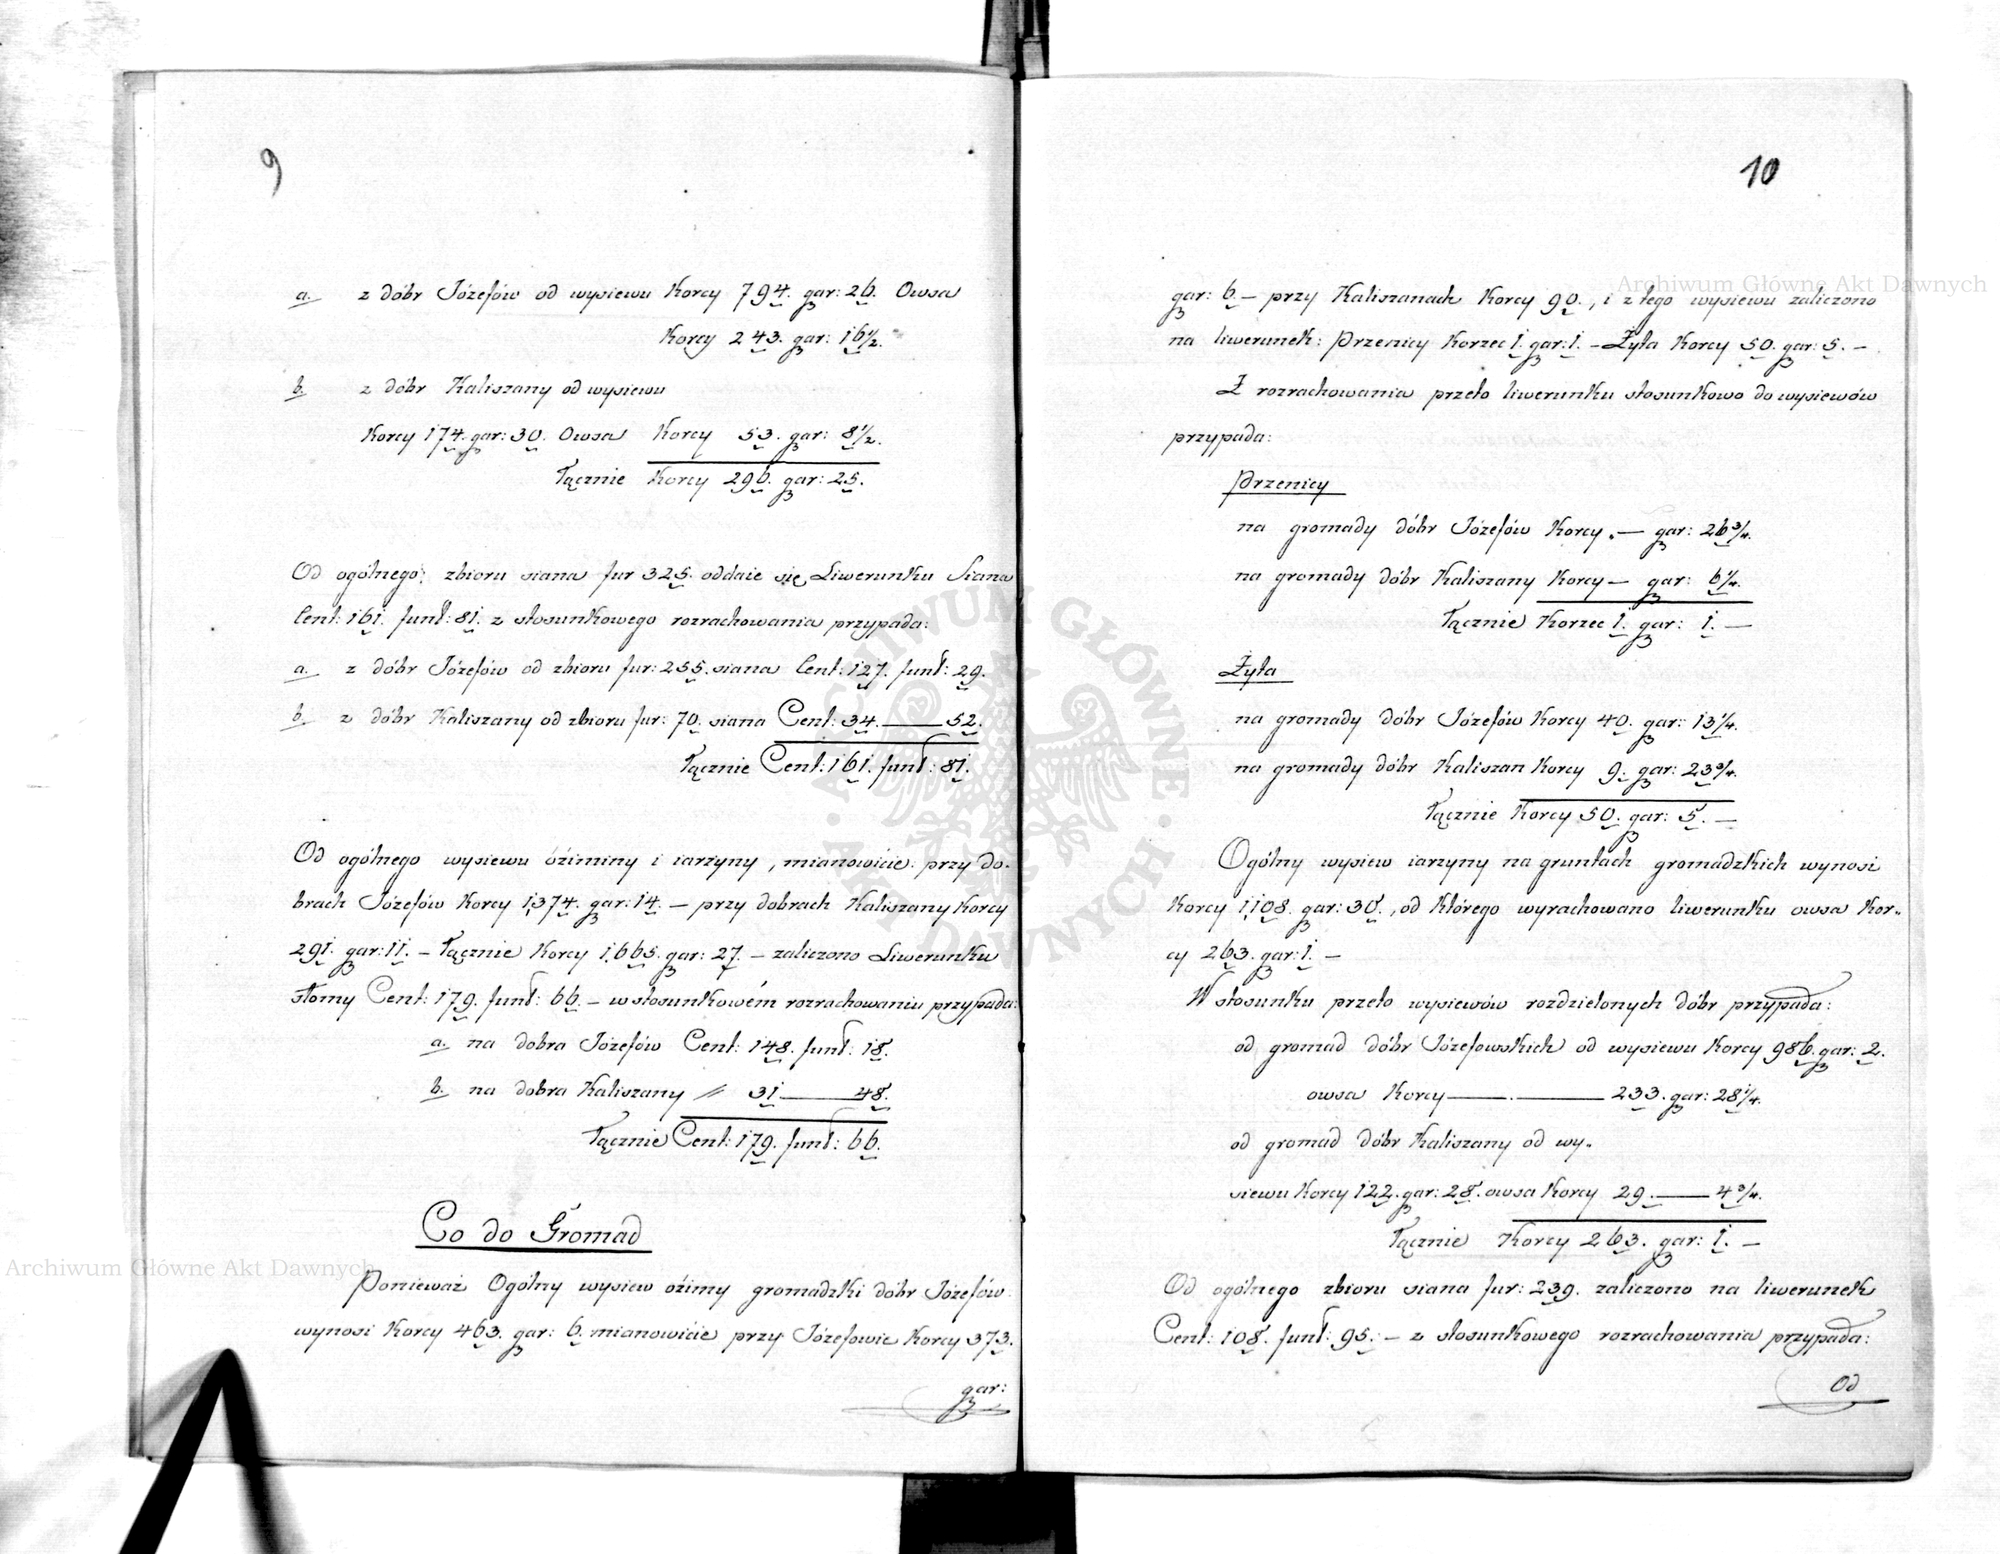 9
a. z dóbr Józefów od wysiewu Korcy 794. gar: 26. Owsa
Korcy 243. gar: 16 1/2.
b. z dóbr Kaliszany od wysiewu
Korcy 174. gar: 30. Owsa Korcy 53. gar: 8 1/2.
Łącznie Korcy 296. gar: 25.
Od ogólnego zbioru siana fur 325. oddaie się Liwerunku Siana
Cent: 161. funt: 81. z stosunkowego rozrachowania przypada:
a. z dóbr Józefów od zbioru fur: 255. siana Cent: 127. funt: 29.
b. z dóbr Kaliszany od zbioru fur: 70. siana Cent: 34. — 52.
Łącznie Cent: 161. funt: 81.
Od ogólnego wysiewu óźiminy i iarzyny, mianowicie: przy do-
brach Józefów Korcy 1,374. gar: 14. — przy dobrach Kaliszany Korcy
291. gar: 11. — Łącznie Korcy 1,665. gar: 27. — zaliczono Liwerunku
słomy Cent: 179. funt: 66. — w stosunkowém rozrachowaniu przypada:
a. na dobra Józefów Cent: 148. funt: 18.
b. na dobra Kaliszany // 31 — 48.
Łącznie Cent: 179. funt: 66.
Co do Gromad
Ponieważ Ogólny wysiew oźimy gromadzki dóbr Józefów
wynosi Korcy 463. gar: 6. mianowicie przy Józefowie Korcy 373.
gar:
10
gar: 6 — przy Kaliszanach Korcy 90., i z tego wysiewu zaliczono
na liwerunek: Przenicy Korzec 1. gar: 1. — Żyta Korcy 50. gar: 5. —
Z rozrachowania przeto liwerunku stosunkowo do wysiewów
przypada:
Przenicy
na gromady dóbr Józefów Korcy . — gar: 26 3/4.
na gromady dóbr Kaliszany Korcy — gar: 6 1/4.
Łącznie Korzec 1. gar: 1. —
Żyta
na gromady dóbr Józefów Korcy 40. gar: 13 1/4.
na gromady dóbr Kaliszan Korcy 9. gar: 23 3/4.
Łącznie Korcy 50. gar: 5. —
Ogólny wysiew iarzyny na gruntach gromadzkich wynosi
Korcy 1,108. gar: 30., od którego wyrachowano liwerunku owsa Kor-
cy 263. gar: 1. —
W stosunku przeto wysiewów rozdzielonych dóbr przypada:
od gromad dóbr Józefowskich od wysiewu Korcy 986. gar: 2.
owsa Korcy — . — 233. gar: 28 1/4.
od gromad dóbr Kaliszany od wy-
siewu Korcy 122. gar: 28. owsa Korcy 29. — 4 3/4.
Łącznie Korcy 263. gar: 1. —
Od ogólnego zbioru siana fur: 239. zaliczono na liwerunek
Cent: 108. funt: 95. — z stosunkowego rozrachowania przypada:
Od
Archiwum Główne Akt Dawnych
Archiwum Główne Akt Dawnych
ARCHIWUM GŁÓWNE · AKT DAWNYCH ·